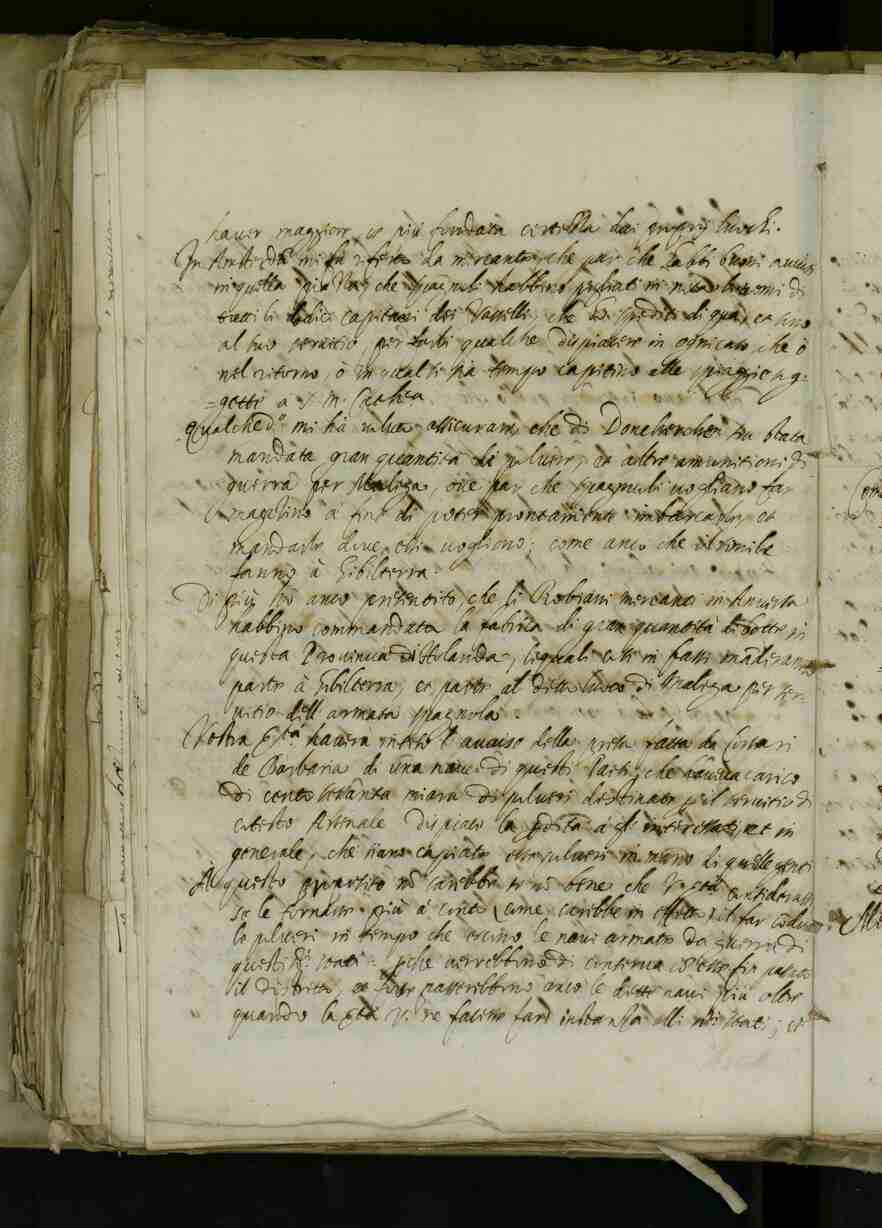 haver maggiore, et più fondata certezza dai proprij luochi.
In Amsterdam mi fu riferto da mercante che par che habbi buoni avvisi
in quella piazza, che spagnoli habbino pigliati in nota li nomi di
tutti li dodici capitani dei vasselli, che ho spediti di qua, et sono
al suo servitio per farli qualche dispiacere in ogni caso, che ò
nel ritorno, ò in qual si sia tempo capitino alle spiaggie sog-
=gette a S. M. Cattca.
Qualched'o mi hà voluto assicurare che di Donckerchen sia stata
mandata gran quantità di polvere, et altre amunitioni di
guerra per Malega, ove par che spagnuoli vogliano far
magazino à fine di poter prontamente imbarcarle, et
mandarle dove essi vogliono; come anco che il simile
fanno à Gibilterra.
Di più hò anco presentito, che li mercanti in Anversa
habbino commandata la fabrica di gran quantità di botte in
questa Provincia di Holanda, le quali in fatti manderanno
parte à Gibilterra, et parte al detto luoco di Malega per ser-
vitio dell'armata spagnola.
Vostra Ecc.za haverà inteso l'avviso della presa fatta da Corsari
de Barbaria di una nave di questi Paesi, che haveva carico
di cento settanta miara di polvere destinate p il servitio di
cotesto Arsenale dispiace la perdita à gl'interessati, et in
generale, che siano capitate esse polveri in mano di quelle genti
A questo proposito nõ sarebbe se nõ bene che V. Ecc.za considerasse
se le tornasse più à conto, come sarebbe in effetto il far condur
le polveri in tempo che escino le navi armate da guerra di
questi ss.ri stati = pche verrebbino di conserva cõ esse fin passato
il distretto, et forse passerebbino anco le dette navi più oltre
quando la Ser.tà V. ne facesse fare instanza alli ss.ri stati; et